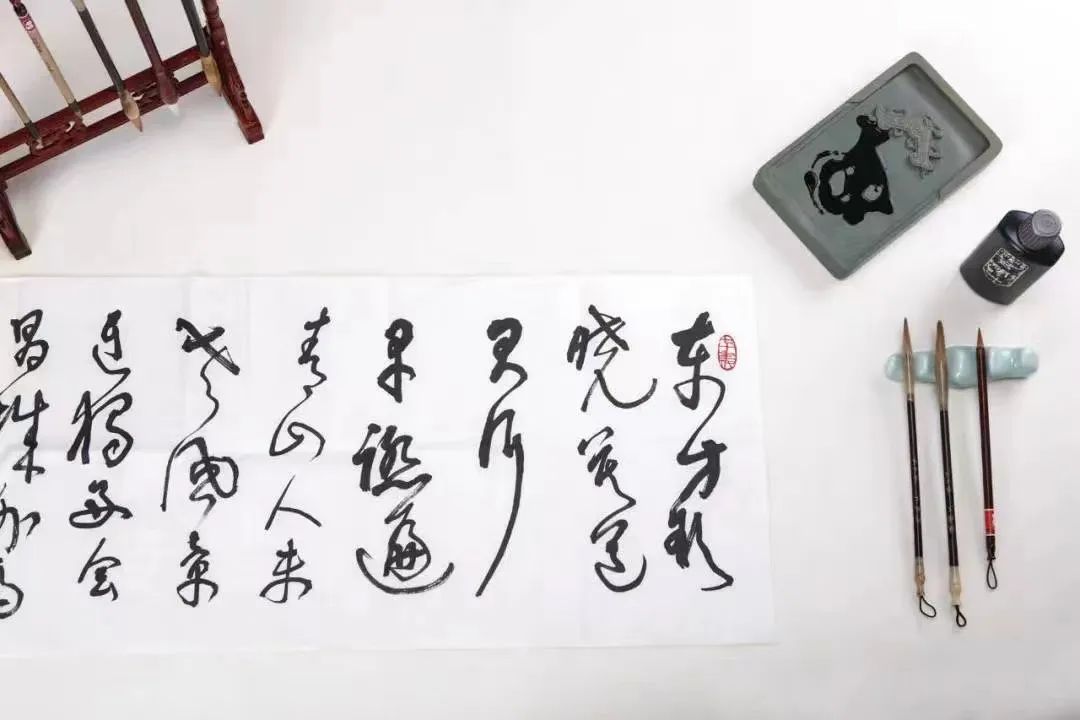 东方欲
晓莫道
君行
早踏遍
青山人未
老風景
边独好会
昌城外高